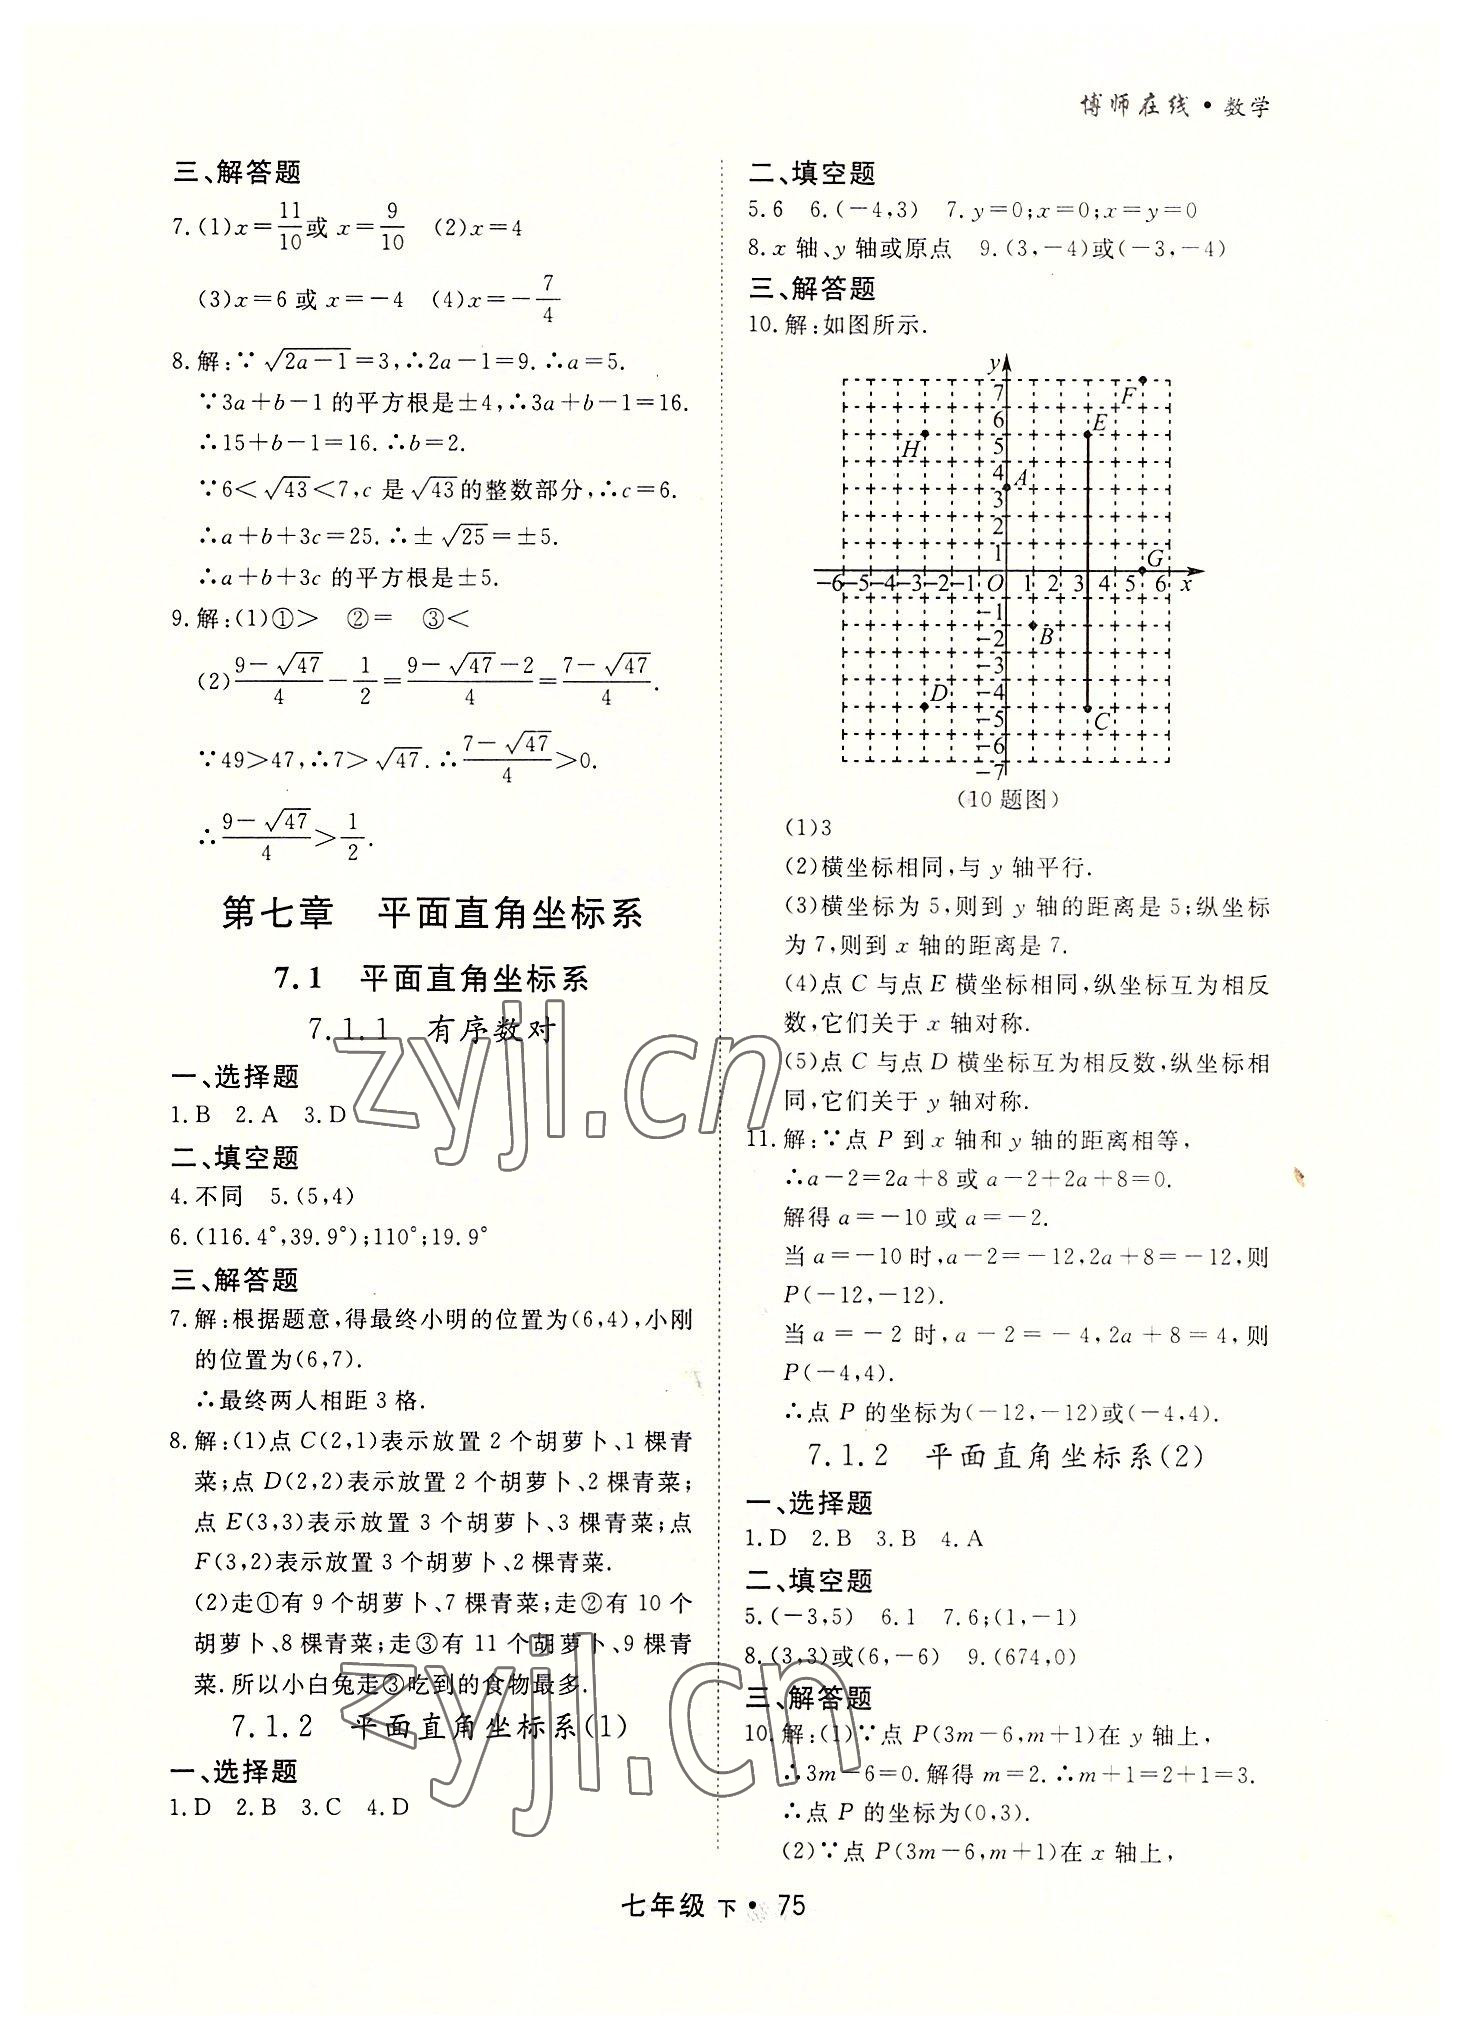 博师在线·数学
三、解答题
7.(1)x=11/10或 x=9/10 (2)x=4
(3)x=6 或 x=-4 (4)x=-7/4
8.解:∵√(2a-1)=3,∴2a-1=9.∴a=5.
∵3a+b-1 的平方根是±4,∴3a+b-1=16.
∴15+b-1=16.∴b=2.
∵6<√43<7,c 是√43的整数部分,∴c=6.
∴a+b+3c=25.∴±√25=±5.
∴a+b+3c 的平方根是±5.
9.解:(1)①> ②= ③<
(2)(9-√47)/4-1/2=(9-√47-2)/4=(7-√47)/4.
∵49>47,∴7>√47.∴(7-√47)/4>0.
∴(9-√47)/4>1/2.
第七章 平面直角坐标系
7.1 平面直角坐标系
7.1.1 有序数对
一、选择题
1.B 2.A 3.D
二、填空题
4.不同 5.(5,4)
6.(116.4°,39.9°);110°;19.9°
三、解答题
7.解:根据题意,得最终小明的位置为(6,4),小刚
的位置为(6,7).
∴最终两人相距 3 格.
8.解:(1)点 C(2,1)表示放置 2 个胡萝卜、1 棵青
菜;点 D(2,2)表示放置 2 个胡萝卜、2 棵青菜;
点 E(3,3)表示放置 3 个胡萝卜、3 棵青菜;点
F(3,2)表示放置 3 个胡萝卜、2 棵青菜.
(2)走①有 9 个胡萝卜、7 棵青菜;走②有 10 个
胡萝卜、8 棵青菜;走③有 11 个胡萝卜、9 棵青
菜.所以小白兔走③吃到的食物最多.
7.1.2 平面直角坐标系(1)
一、选择题
1.D 2.B 3.C 4.D
二、填空题
5.6 6.(-4,3) 7.y=0;x=0;x=y=0
8.x 轴、y 轴或原点 9.(3,-4)或(-3,-4)
三、解答题
10.解:如图所示.
y
7
F
6
E
H
5
4
A
3
2
1
G
-6 -5 -4 -3 -2 -1 O 1 2 3 4 5 6 x
-1
B
-2
-3
D
-4
C
-5
-6
-7
(10 题图)
(1)3
(2)横坐标相同,与 y 轴平行.
(3)横坐标为 5,则到 y 轴的距离是 5;纵坐标
为 7,则到 x 轴的距离是 7.
(4)点 C 与点 E 横坐标相同,纵坐标互为相反
数,它们关于 x 轴对称.
(5)点 C 与点 D 横坐标互为相反数,纵坐标相
同,它们关于 y 轴对称.
11.解:∵点 P 到 x 轴和 y 轴的距离相等,
∴a-2=2a+8 或 a-2+2a+8=0.
解得 a=-10 或 a=-2.
当 a=-10 时,a-2=-12,2a+8=-12,则
P(-12,-12).
当 a=-2 时,a-2=-4,2a+8=4,则
P(-4,4).
∴点 P 的坐标为(-12,-12)或(-4,4).
7.1.2 平面直角坐标系(2)
一、选择题
1.D 2.B 3.B 4.A
二、填空题
5.(-3,5) 6.1 7.6;(1,-1)
8.(3,3)或(6,-6) 9.(674,0)
三、解答题
10.解:(1)∵点 P(3m-6,m+1)在 y 轴上,
∴3m-6=0.解得 m=2.∴m+1=2+1=3.
∴点 P 的坐标为(0,3).
(2)∵点 P(3m-6,m+1)在 x 轴上,
七年级 下·75
zyjl.cn
zyjl.cn